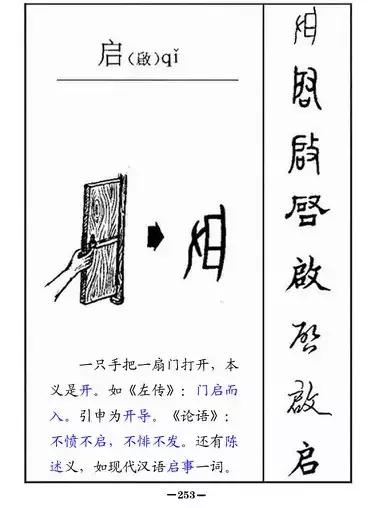 启(啟)qǐ
一只手把一扇门打开,本
义是开。如《左传》:门启而
入。引申为开导。《论语》:
不愤不启,不悱不发。还有陈
述义,如现代汉语启事一词。
啟
啟
启
-253-